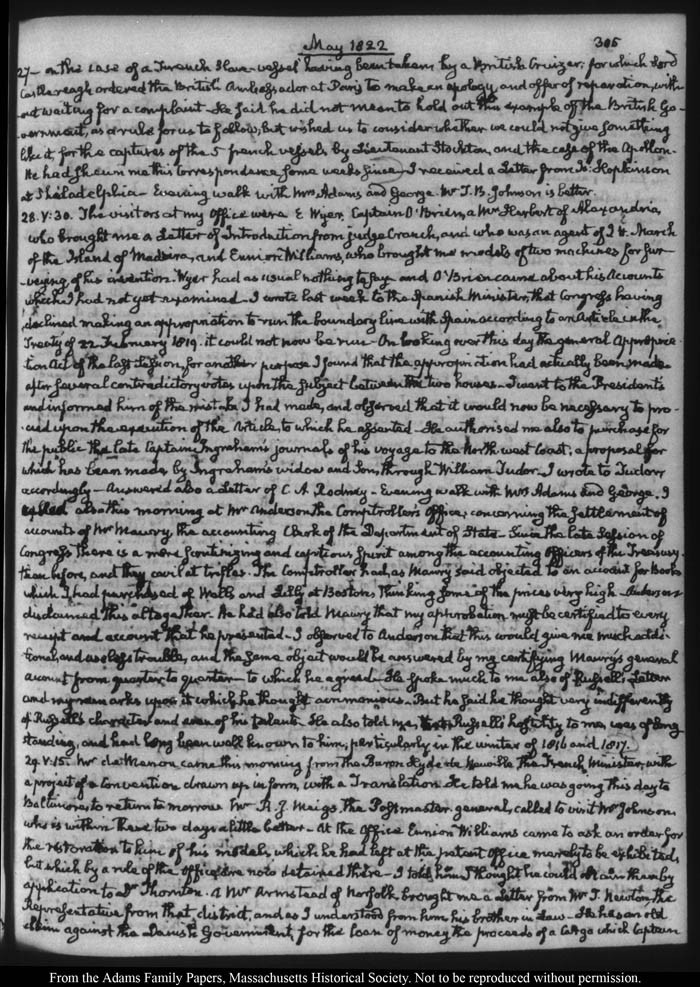 May 1822
305
27— on the case of a French Slave-vessel having been taken by a British Cruizer; for which Lord
Castlereagh ordered the British Ambassador at Paris to make an apology and offer of reparation, with-
out waiting for a complaint— He said he did not mean to hold out this example of the British Go-
vernment, as a rule for us to follow, but wished us to consider whether we could not give something
like it, for the captures of the 5 french vessels by Lieutenant Stockton, and the case of the Apollon.
He had shewn me this Correspondence some weeks since— I received a Letter from Jos: Hopkinson
at Philadelphia— Evening walk with Mrs Adams and George. Mr T. B. Johnson is better.
28. V:30. The visitors at my Office were E. Wyer, Captain O'Brien, a Mr Herbert of Alexandria,
who brought me a Letter of Introduction from judge Cranch, and who was an agent of J H. March
of the Island of Madeira, and Eunion Williams, who brought me models of two machines for sur-
veying, of his invention. Wyer had as usual nothing to say— and O'Brien came about his Accounts
which I had not yet examined— I wrote last week to the Spanish Minister, that Congress having
declined making an appropriation to run the boundary line with Spain according to an Article in the
Treaty of 22 February 1819. it could not now be run— On looking over this day the general Appropria-
tion Act of the last Session, for another purpose I found that the appropriation had actually been made
after several contradictory votes upon the subject between the two houses— I went to the President's
and informed him of the mistake I had made, and observed that it would now be necessary to pro-
ceed upon the execution of the Article, to which he assented— He authorised me also to purchase for
the public the late Captain Ingraham's journals of his voyage to the North-west Coast; a proposal for
which has been made by Ingraham's widow and Son, through William Tudor. I wrote to Tudor
accordingly— Answered also a Letter of C. A. Rodney— Evening walk with Mrs Adams and George. I
called also this morning at Mr Anderson the Comptroller's Office; concerning the settlement of
accounts of Mr Maury the accounting Clerk of the Department of State— Since the late Session of
Congress there is a more scrutinizing and captious spirit among the accounting Officers of the Treasury
than before, and they cavil at trifles. The Comptroller had, as Maury said objected to an account for Books
which I had purchased of Wells and Lilly at Boston, thinking some of the prices very high— Anderson
disclaimed this altogether. He had also told Maury that my approbation must be certified to every
receipt and account that he presented— I observed to Anderson that this would give me much addi-
tional, and useless trouble, and the same object would be answered by my certifying Maury's general
account from quarter to quarter— to which he agreed. He spoke much to me also of Russell's Letter
and my remarks upon it which he thought acrimonious— But he said he thought very indifferently
of Russell's character and even of his talents. He also told me, that Russell's hostility to me, was of long
standing, and had long been well known to him, particularly in the winter of 1816 and 1817.
29. V:15. Mr de Menou came this morning from the Baron Hyde de Neuville the French Minister, with
a project of a Convention drawn up in form, with a Translation. He told me he was going this day to
Baltimore, to return to morrow. Mr R. J. Meigs, the Postmaster general, called to visit Mr Johnson,
who is within these two days a little better— At the Office Eunion Williams came to ask an order for
the restoration to him of his models, which he had left at the patent Office merely to be exhibited,
but which by a rule of the Office were now detained there— I told him I thought he could obtain them by
application to Dr Thornton. A Mr Armstead of Norfolk brought me a Letter from Mr T. Newton, the
Representative from that district, and as I understood from him his brother in Law— He has an old
claim against the Danish Government, for the loan of money the proceeds of a Cargo which Captain
From the Adams Family Papers, Massachusetts Historical Society. Not to be reproduced without permission.